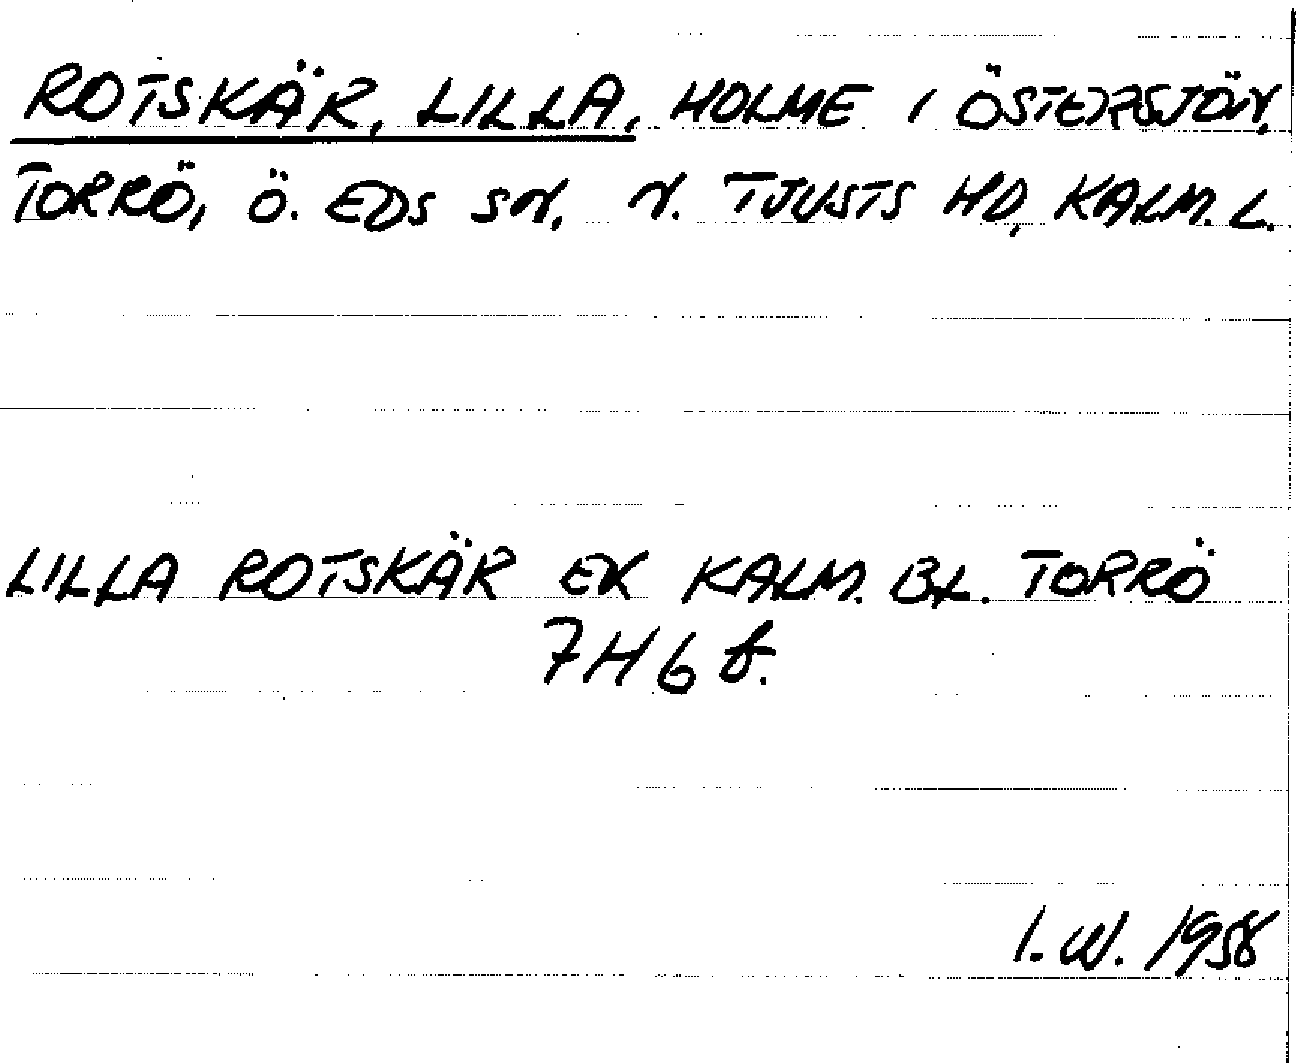 ROTSKÄR, LILLA, HOLME I ÖSTERSJÖN,
TORRÖ, Ö. EDS SN, N. TJUSTS HD, KALM. L.
LILLA ROTSKÄR EK KALM. BL. TORRÖ
7H6f.
I. W. 1958